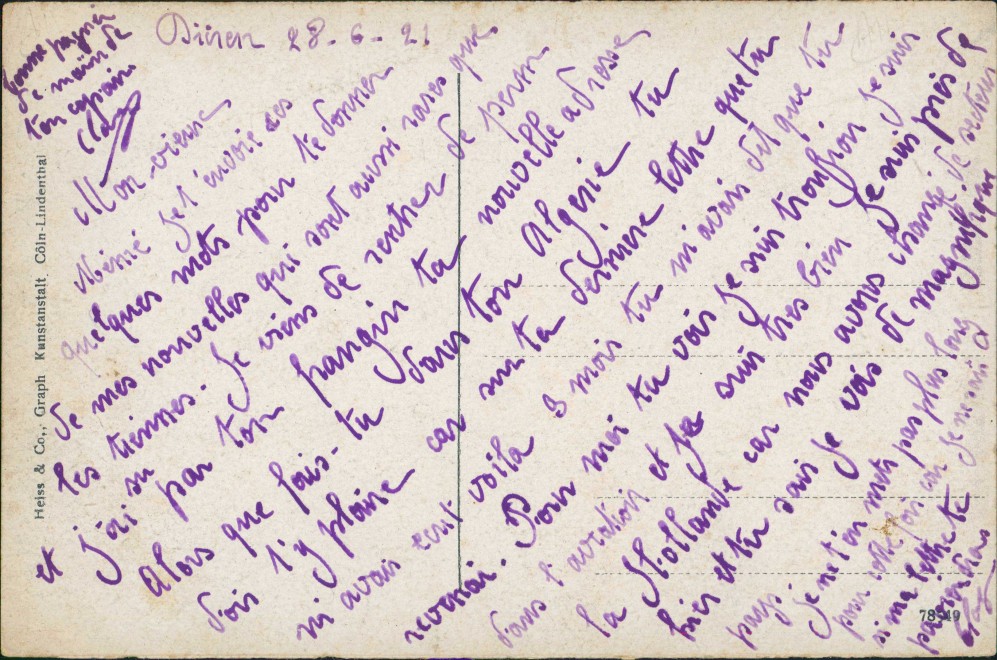 Düren 28-6-21
Mon vieux
Mémé je t'envoie ces
quelques mots pour te donner
de mes nouvelles qui sont aussi rares que
les tiennes. Je viens de rentrer de perm
et j'ai su par ton frangin ta nouvelle adresse
Alors que fais-tu dans ton Algérie tu
dois t'y plaire car sur ta dernière lettre que tu
m'avais ecrit voila 3 mois tu m'avais dit que tu
revenai. Pour moi tu vois je suis toujours je suis
dans l'aviation et je suis tres bien je suis près de
la Hollande car nous avons changé de secteur
hier et tu sais je vois de magnifique
pays je ne t'en mets pas plus long
pour cette fois car je ne sais
si ma lettre te
parviendras
bonne pognée
de main de
ton copain
Heiss & Co., Graph Kunstanstalt. Cöln-Lindenthal
78549